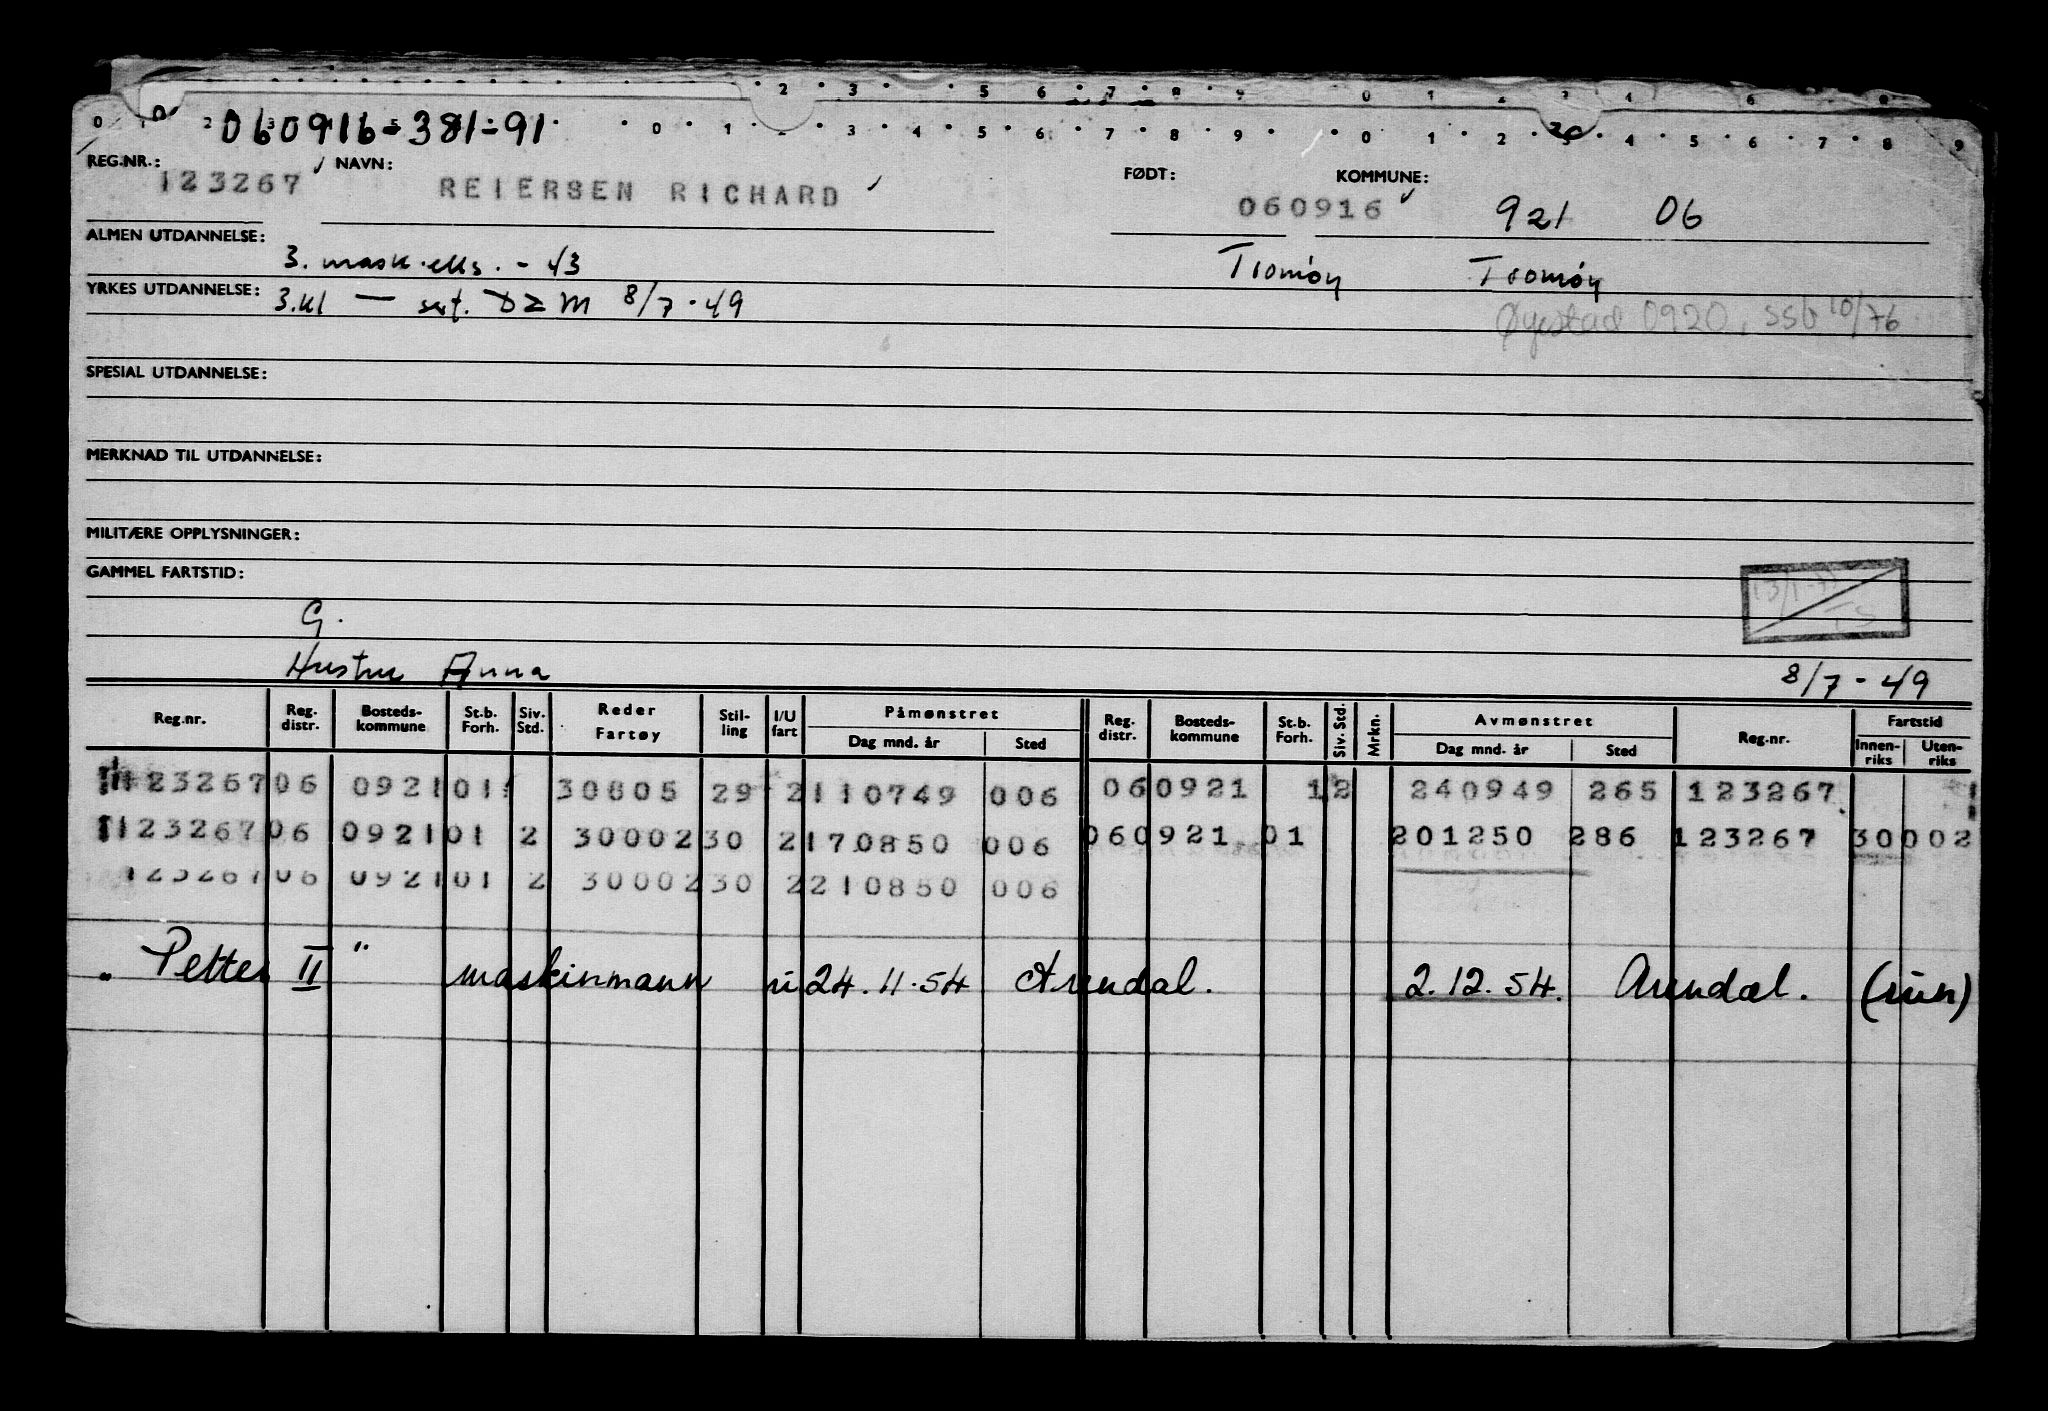 2 3 5 6 7 8 9 0 1 2 3 4 6 8
0 1 2 3 5 0 1 2 3 4 5 6 7 8 9 0 1 2 3 4 5 6 7 8 9
060916-381-91
REG.NR.: 123267 NAVN: REIERSEN RICHARD FØDT: 060916 KOMMUNE: 921 06
ALMEN UTDANNELSE: 3. mask.eks. - 43 Tromøy Tromøy
YRKES UTDANNELSE: 3.kl — sert. D 2 M 8/7-49 Øyestad 0920, SSB 10/76
SPESIAL UTDANNELSE:
MERKNAD TIL UTDANNELSE:
MILITÆRE OPPLYSNINGER:
GAMMEL FARTSTID:
G.
Hustru Anna 8/7-49
Reg.nr. Reg. distr. Bosteds-kommune St.b. Forh. Siv. Std. Reder Fartøy Stil-ling I/U fart Påmønstret Dag mnd. år Sted Reg. distr. Bosteds-kommune St.b. Forh. Siv. Std. Mrkn. Avmønstret Dag mnd. år Sted Reg.nr. Fartstid Innen-riks Uten-riks
123267 06 0921 01 30805 29 2 110749 006 06 0921 1 2 240949 265 123267
123267 06 0921 01 2 30002 30 2 170850 006 06 0921 01 201250 286 123267 30002
123267 06 0921 01 2 30002 30 2 210850 006
"Petter II" maskinmann u 24.11.54 Arendal. 2.12.54. Arendal.